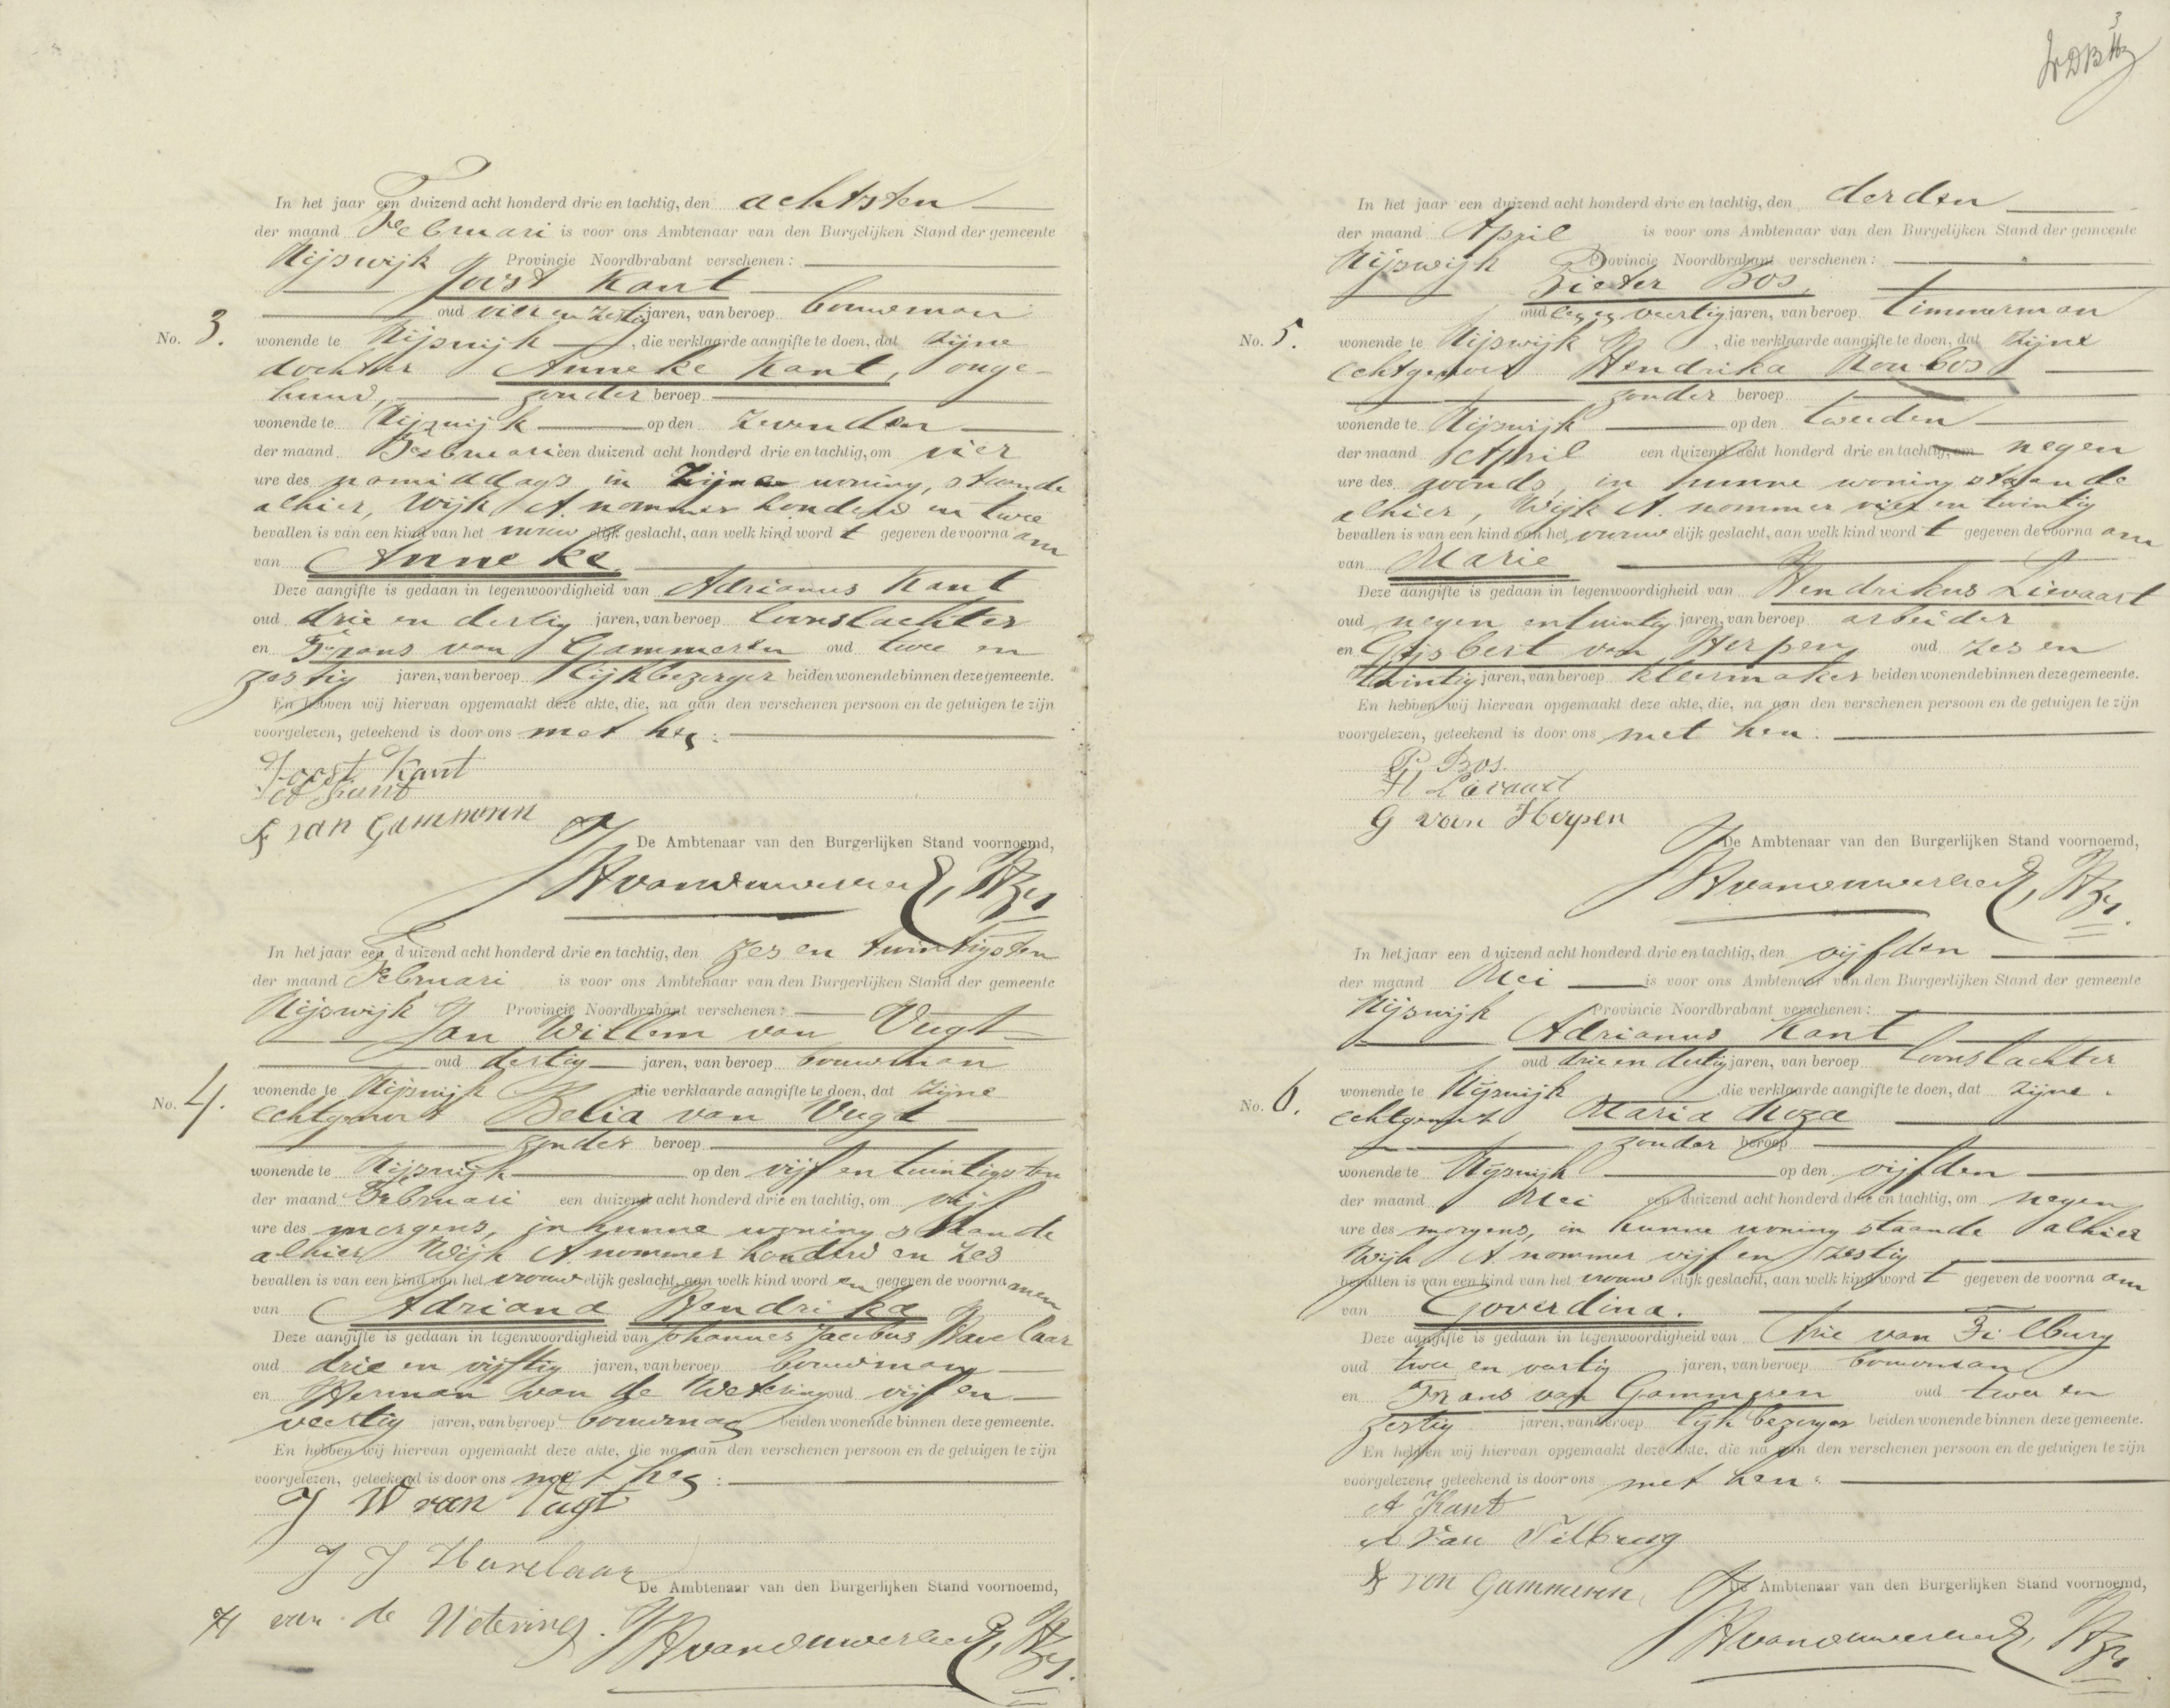 In het jaar een duizend acht honderd drie en tachtig, den achtsten
der maand Februari is voor ons Ambtenaar van den Burgelijken Stand der gemeente
Rijswijk Provincie Noordbrabant verschenen:
Joost Kant
oud vier en zestig jaren, van beroep bouwman
No. 3. wonende te Rijswijk, die verklaarde aangifte te doen, dat zijne
dochter Anneke Kant, onge-
huwd, zonder beroep
wonende te Rijswijk op den zevenden
der maand Februari een duizend acht honderd drie en tachtig, om vier
ure des namiddags in zijne woning, staande
alhier, Wijk A. nommer honderd en twee
bevallen is van een kind van het vrouwelijk geslacht, aan welk kind wordt gegeven de voornaam
van Anneke.
Deze aangifte is gedaan in tegenwoordigheid van Adrianus Kant
oud drie en dertig jaren, van beroep loonslachter
en Frans van Gammeren oud twee en
zestig jaren, van beroep lijkbezorger beiden wonende binnen deze gemeente.
En hebben wij hiervan opgemaakt deze akte, die, na aan den verschenen persoon en de getuigen te zijn
voorgelezen, geteekend is door ons met hen:
Joost Kant
A Kant
F van Gammeren
De Ambtenaar van den Burgerlijken Stand voornoemd,
In het jaar een duizend acht honderd drie en tachtig, den zes en twintigsten
der maand Februari is voor ons Ambtenaar van den Burgerlijken Stand der gemeente
Rijswijk Provincie Noordbrabant verschenen:
Jan Willem van Vugt
oud dertig jaren, van beroep bouwman
No. 4. wonende te Rijswijk die verklaarde aangifte te doen, dat zijne
echtgenoot Belia van Vugt
zonder beroep
wonende te Rijswijk op den vijf en twintigsten
der maand Februari een duizend acht honderd drie en tachtig, om vijf
ure des morgens, in hunne woning staande
alhier Wijk A. nommer honderd en zes
bevallen is van een kind van het vrouwelijk geslacht, aan welk kind worden gegeven de voornamen
van Adriana Hendrika
Deze aangifte is gedaan in tegenwoordigheid van Johannes Jacobus Havelaar
oud drie en vijftig jaren, van beroep bouwman
en Herman van de Wetering oud vijf en
veertig jaren, van beroep bouwman beiden wonende binnen deze gemeente.
En hebben wij hiervan opgemaakt deze akte, die na aan den verschenen persoon en de getuigen te zijn
voorgelezen, geteekend is door ons met hen:
J W van Vugt
J J Havelaar
De Ambtenaar van den Burgerlijken Stand voornoemd,
H van de Wetering.
3
In het jaar een duizend acht honderd drie en tachtig, den derden
der maand April is voor ons Ambtenaar van den Burgelijken Stand der gemeente
Rijswijk Provincie Noordbrabant verschenen:
Pieter Bos,
oud veertig jaren, van beroep timmerman
No. 5. wonende te Rijswijk, die verklaarde aangifte te doen, dat zijne
echtgenoot Hendrika Roubos
zonder beroep
wonende te Rijswijk op den tweeden
der maand April een duizend acht honderd drie en tachtig, om negen
ure des avonds, in hunne woning staande
alhier, Wijk A. nommer vier en twintig
bevallen is van een kind van het vrouwelijk geslacht, aan welk kind wordt gegeven de voornaam
van Marie
Deze aangifte is gedaan in tegenwoordigheid van Hendrikus Lievaart
oud negen en twintig jaren, van beroep arbeider
en Gijsbert van Herpen oud zes en
twintig jaren, van beroep kleermaker beiden wonende binnen deze gemeente.
En hebben wij hiervan opgemaakt deze akte, die, na aan den verschenen persoon en de getuigen te zijn
voorgelezen, geteekend is door ons met hen:
P Bos.
H Lievaart
G van Herpen
De Ambtenaar van den Burgerlijken Stand voornoemd,
In het jaar een duizend acht honderd drie en tachtig, den vijfden
der maand Mei is voor ons Ambtenaar van den Burgerlijken Stand der gemeente
Rijswijk Provincie Noordbrabant verschenen:
Adrianus Kant
oud drie en dertig jaren, van beroep loonslachter
No. 6. wonende te Rijswijk, die verklaarde aangifte te doen, dat zijne
echtgenoot Maria Roza
zonder beroep
wonende te Rijswijk op den vijfden
der maand Mei een duizend acht honderd drie en tachtig, om negen
ure des morgens, in hunne woning staande alhier
Wijk A nommer vijf en zestig
bevallen is van een kind van het vrouwelijk geslacht, aan welk kind wordt gegeven de voornaam
van Goverdina.
Deze aangifte is gedaan in tegenwoordigheid van Arie van Tilburg
oud twee en veertig jaren, van beroep bouwman
en Frans van Gammeren oud twee en
zestig jaren, van beroep lijkbezorger beiden wonende binnen deze gemeente.
En hebben wij hiervan opgemaakt deze akte, die na aan den verschenen persoon en de getuigen te zijn
voorgelezen, geteekend is door ons met hen:
A Kant
A van Tilburg
F van Gammeren
De Ambtenaar van den Burgerlijken Stand voornoemd,